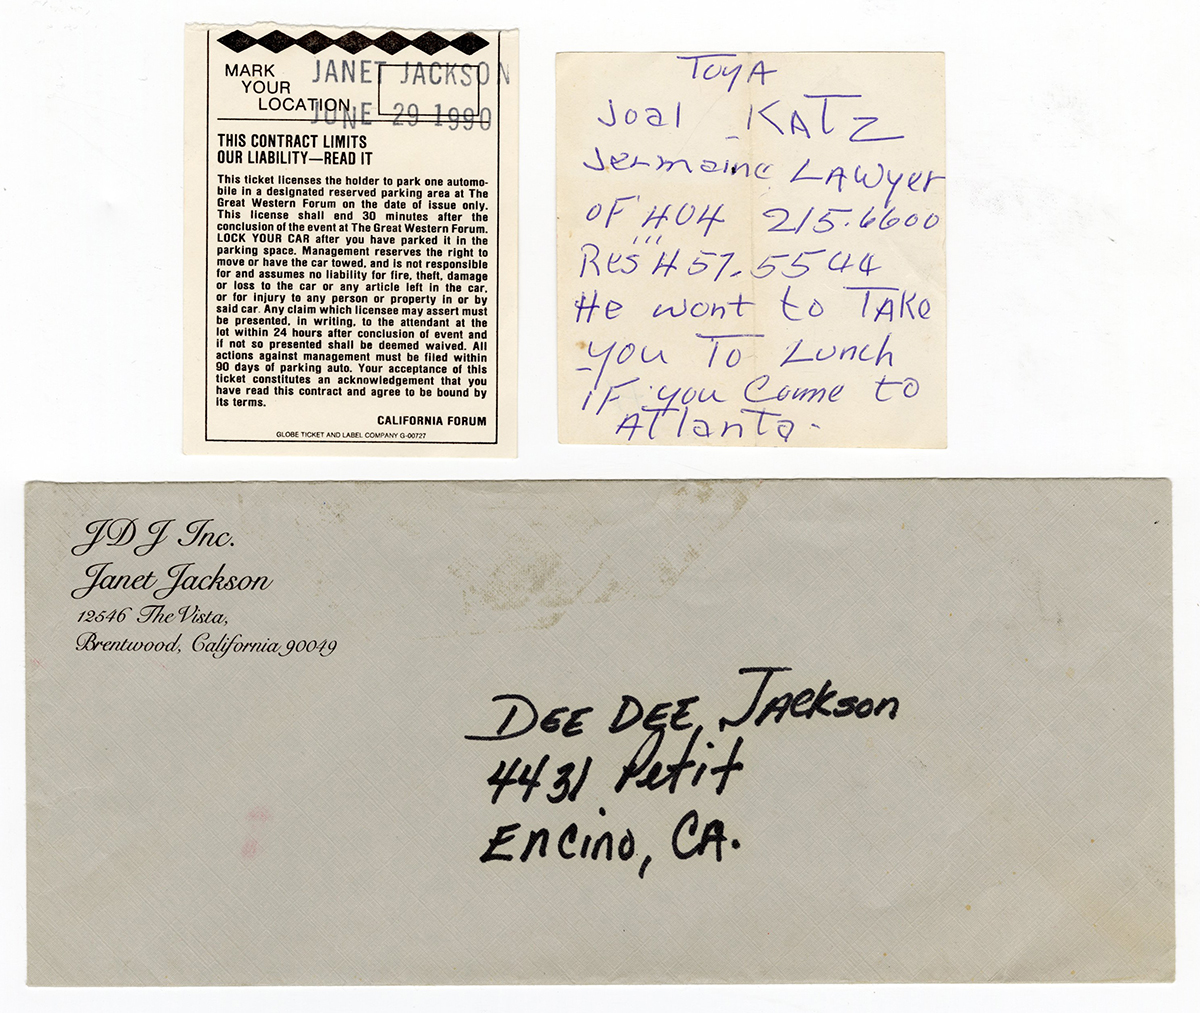 JANET JACKSON
JUNE 29 1990
MARK
YOUR
LOCATION
THIS CONTRACT LIMITS
OUR LIABILITY—READ IT
This ticket licenses the holder to park one automo-
bile in a designated reserved parking area at The
Great Western Forum on the date of issue only.
This license shall end 30 minutes after the
conclusion of the event at The Great Western Forum.
LOCK YOUR CAR after you have parked it in the
parking space. Management reserves the right to
move or have the car towed, and is not responsible
for and assumes no liability for fire, theft, damage
or loss to the car or any article left in the car,
or for injury to any person or property in or by
said car. Any claim which licensee may assert must
be presented, in writing, to the attendant at the
lot within 24 hours after conclusion of event and
if not so presented shall be deemed waived. All
actions against management must be filed within
90 days of parking auto. Your acceptance of this
ticket constitutes an acknowledgement that you
have read this contract and agree to be bound by
its terms.
CALIFORNIA FORUM
GLOBE TICKET AND LABEL COMPANY G-00727
TOYA
Joal KATZ
Jermaine LAWyer
OF 404 215.6600
Res 457.5544
He wont to TAKE
you To Lunch
IF you Come to
Atlanta.
JDJ Inc.
Janet Jackson
12546 The Vista,
Brentwood, California 90049
DEE DEE Jackson
4431 Petit
Encino, CA.